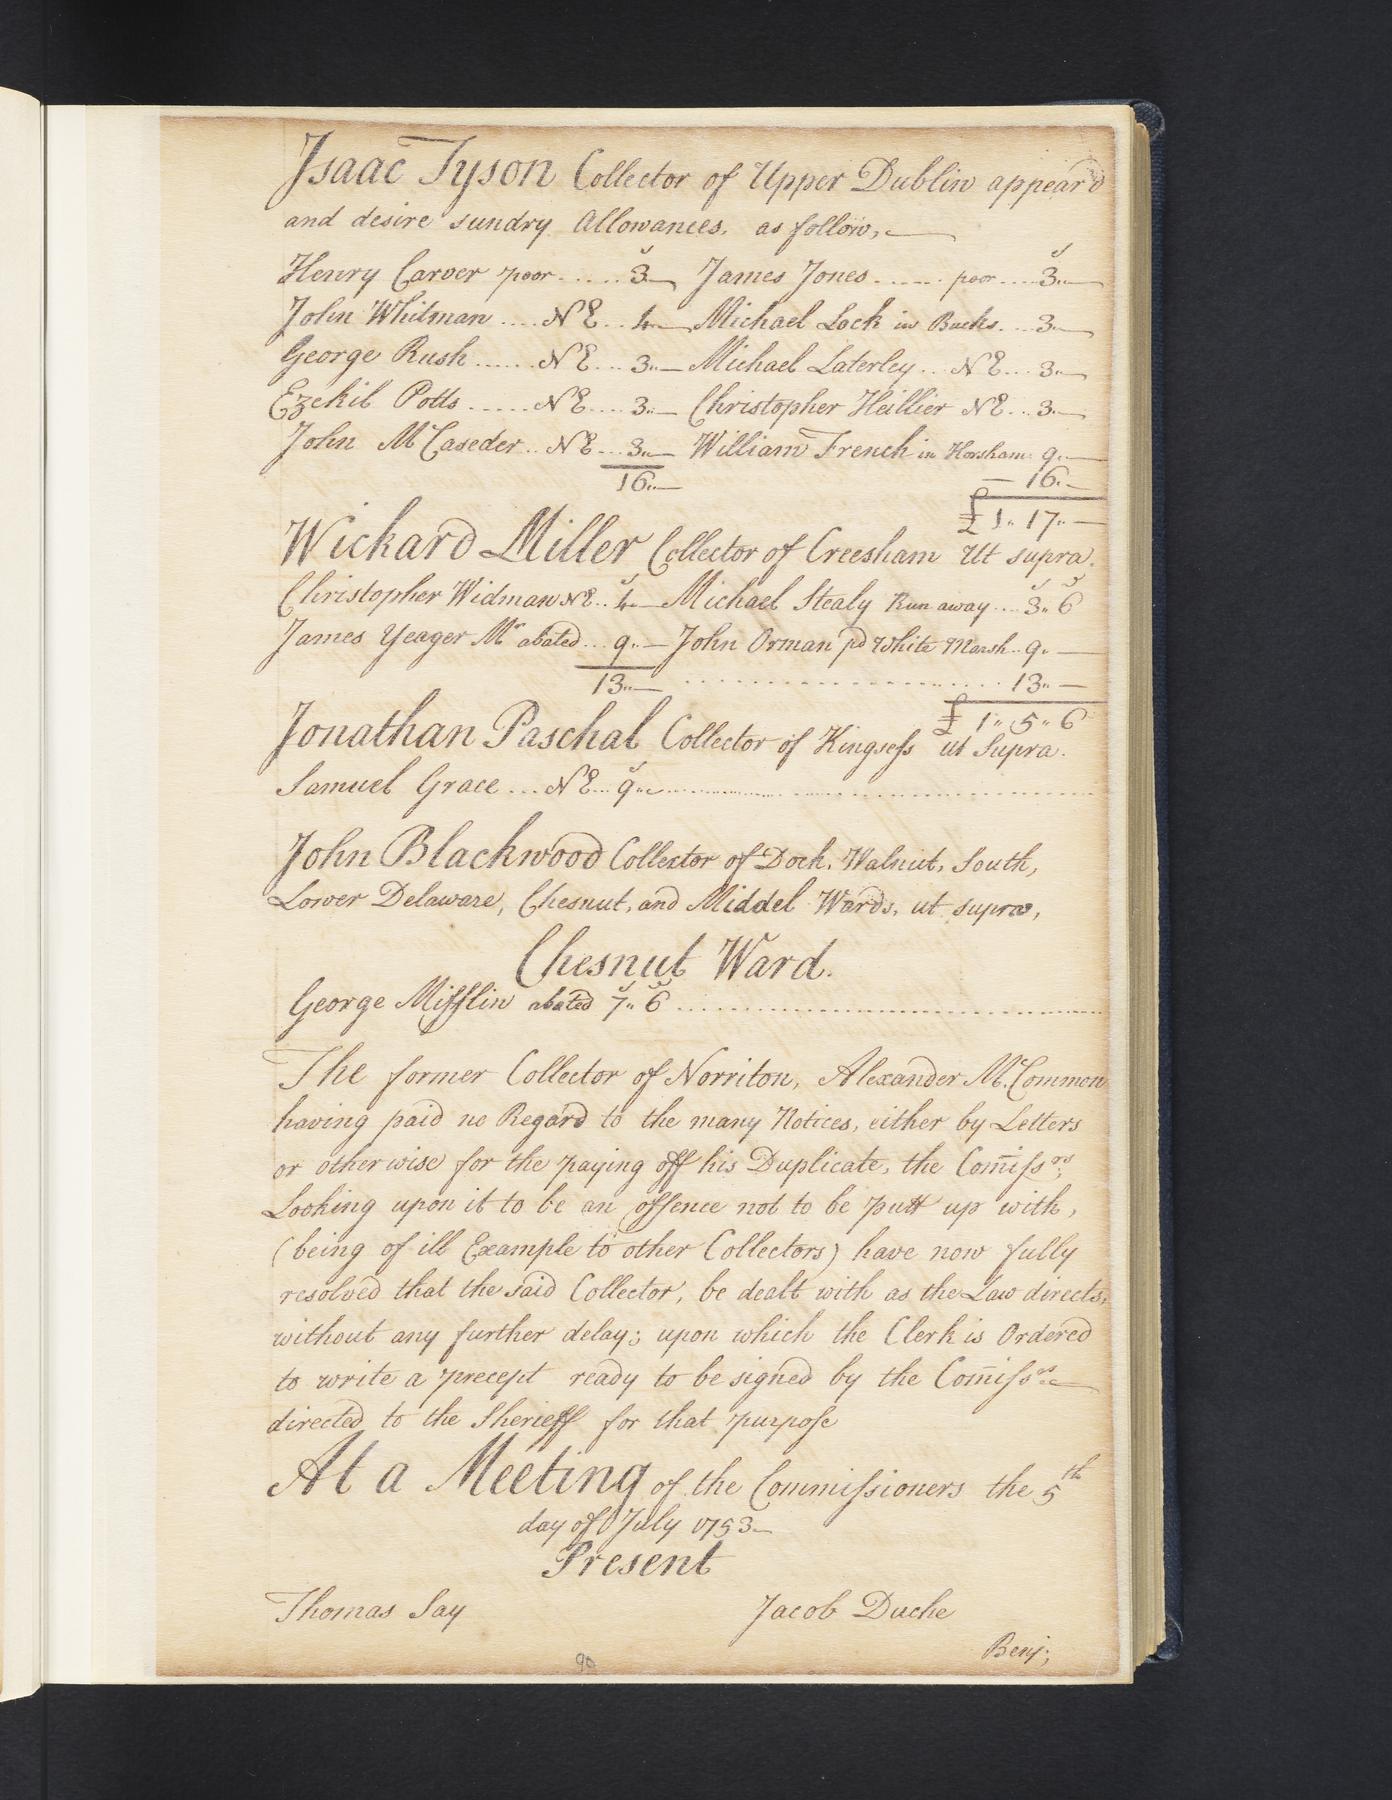 Isaac Tyson Collector of Upper Dublin appear'd
and desire sundry Allowances, as follow,
Henry Carver poor ..... 3 s James Jones ...... poor .... 3 s
John Whitman .... N E ... 4 Michael Lock in Bucks ... 3
George Rush ...... N E .... 3 Michael Laterley ... N E .... 3
Ezekil Potts ...... N E .... 3 Christopher Heillier N E ... 3
John McCaseder .. N E ... 3 William French in Horsham 9
16 16
£ 1 17
Wickard Miller Collector of Creesham Ut supra.
Christopher Widman N E .. 4 s Michael Stealy Run away .... 3 s 6 d
James Yeager Mr abated ... 9 John Orman pd White Marsh .. 9
13 13
£ 1 5 6
Jonathan Paschal Collector of Kingsess ut Supra.
Samuel Grace ... N E ... 9 s
John Blackwood Collector of Dock, Walnut, South,
Lower Delaware, Chesnut, and Middel Wards, ut supra,
Chesnut Ward.
George Mifflin abated 7 s 6 d
The former Collector of Norriton, Alexander Mc.Common
having paid no Regard to the many Notices, either by Letters
or otherwise for the paying off his Duplicate, the Comissrs,
Looking upon it to be an offence not to be putt up with,
(being of ill Example to other Collectors) have now fully
resolved that the said Collector, be dealt with as the Law directs,
without any further delay; upon which the Clerk is Ordered
to write a precept ready to be signed by the Comissrs
directed to the Sherieff for that purpose
At a Meeting of the Commissioners the 5th
day of July 1753
Present
Thomas Say Jacob Duche
Benj;
90